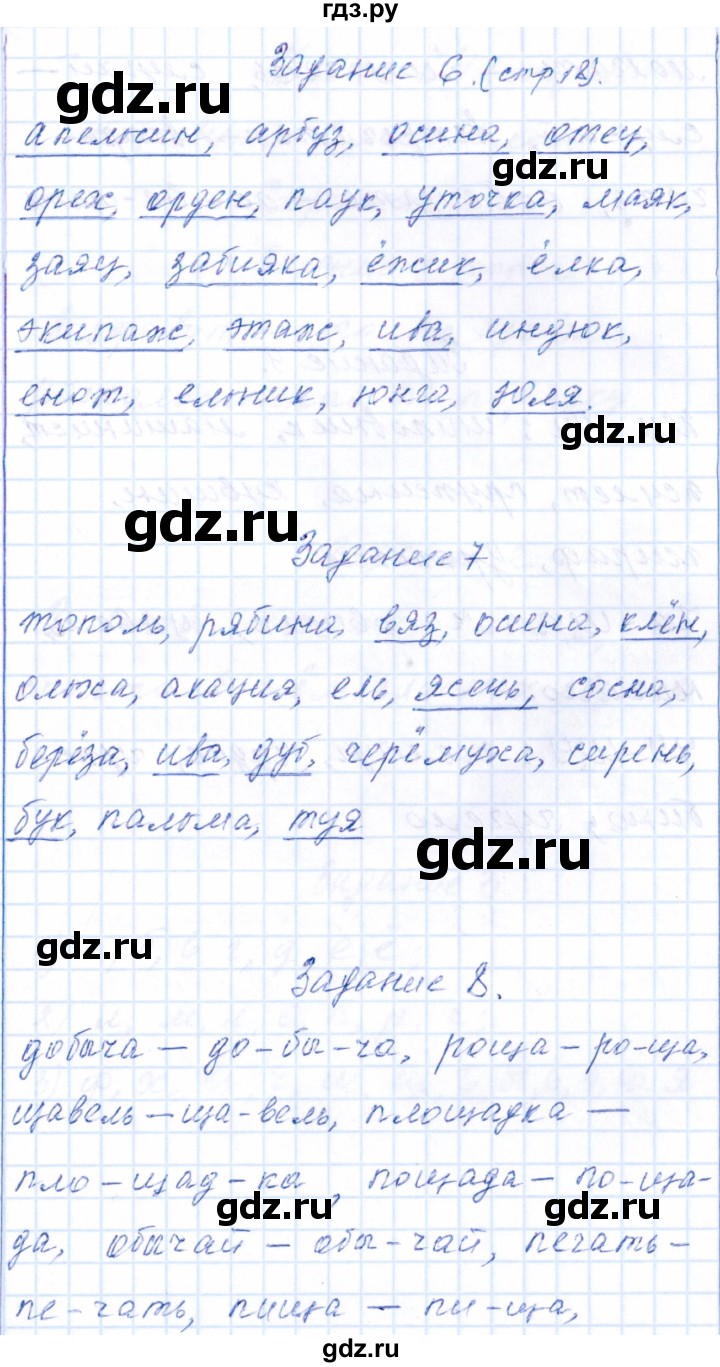 гдз.ру
Задание 6.(стр 12).
gdz.ru
апельсин, арбуз, осина, отец,
gdz.ru
орех, орден, паук, уточка, маяк,
заяц, забияка, ёжик, ёлка,
экипаж, этаж, ива, индюк,
енот, ельник, юнга, Юля.
gdz.ru
gdz.ru
Задание 7
тополь, рябина, вяз, осина, клён,
ольха, акация, ель, ясень, сосна,
берёза, ива, дуб, черёмуха, сирень,
бук, пальма, туя
gdz.ru
gdz.ru
Задание 8.
добыча – до-бы-ча, роща – ро-ща,
щавель – ща-вель, площадка –
пло-щад-ка, пощада – по-ща-
gdz.ru
gdz.ru
да, обычай – обы-чай, печать –
пе-чать, пища – пи-ща,
gdz.ru